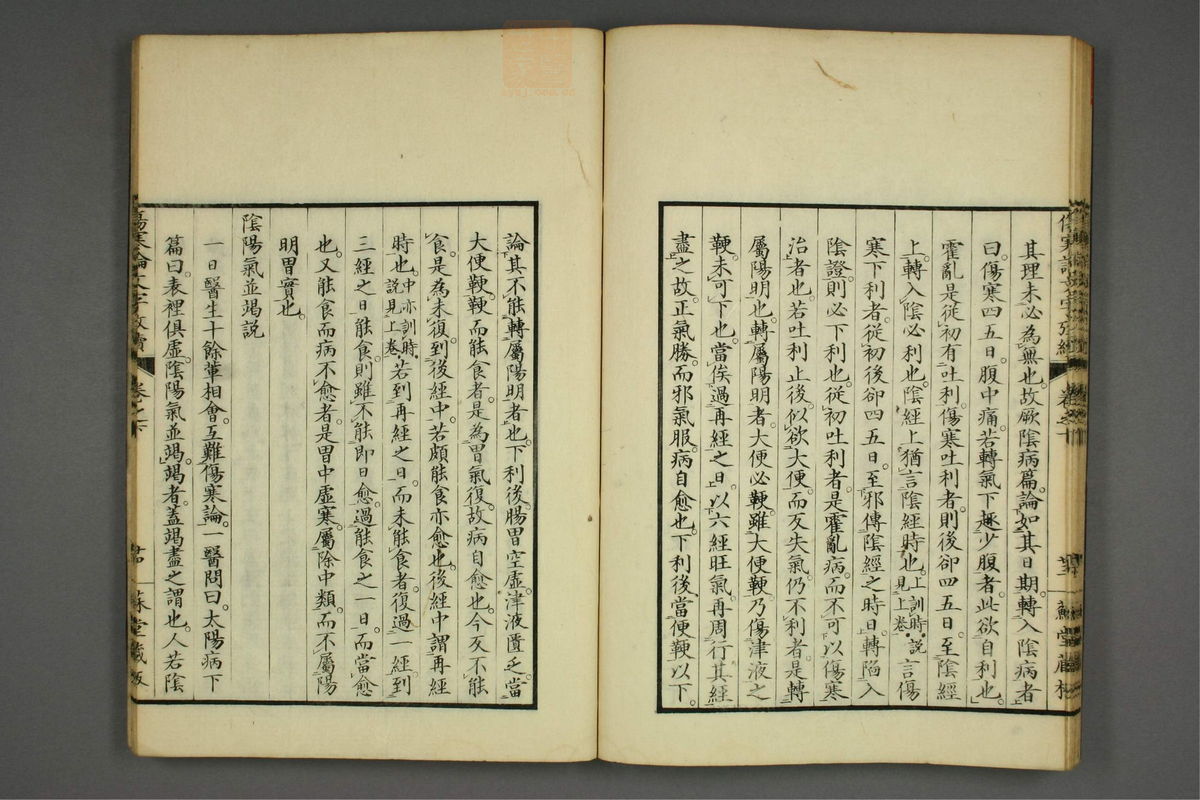 其理未必為無也。故厥陰病篇論如其日期轉入陰病者
曰。傷寒四五日。腹中痛。若轉氣下趣少腹者。此欲自利也。
霍亂是從初有吐利。傷寒吐利者。則後卻四五日。至陰經
上。轉入陰必利也。陰經上。猶言陰經時也。上訓時。說見上卷。言傷
寒下利者。從初後卻四五日。至邪傳陰經之時日。轉陷入
陰證。則必下利也。從初吐利者。是霍亂病。而不可以傷寒
治者也。若吐利止後。似欲大便。而反失氣。仍不利者。是轉
屬陽明也。轉屬陽明者。大便必鞕。雖大便鞕。乃傷津液之
鞕。未可下也。當俟過再經之日。以六經旺氣。再周行其經
盡之故。正氣勝。而邪氣服。病自愈也。下利後。當便鞕以下。
論其不能轉屬陽明者也。下利後。腸胃空虛。津液匱乏。當
大便鞕。鞕而能食者。是為胃氣復。故病自愈也。今反不能
食。是為未復。到後經中。若頗能食亦愈也。後經中。謂再經
時也。中亦訓時。說見上卷。若到再經之日。而未能食者。復過一經。到
三經之日能食。則雖不能即日愈。過能食之一日。而當愈
也。又能食而病不愈者。是胃中虛寒。屬除中類。而不屬陽
明胃實也。
陰陽氣並竭說
一日醫生十餘輩相會。互難傷寒論。一醫問曰。太陽病下
篇曰。表裡俱虛。陰陽氣並竭。竭者。蓋竭盡之謂也。人若陰